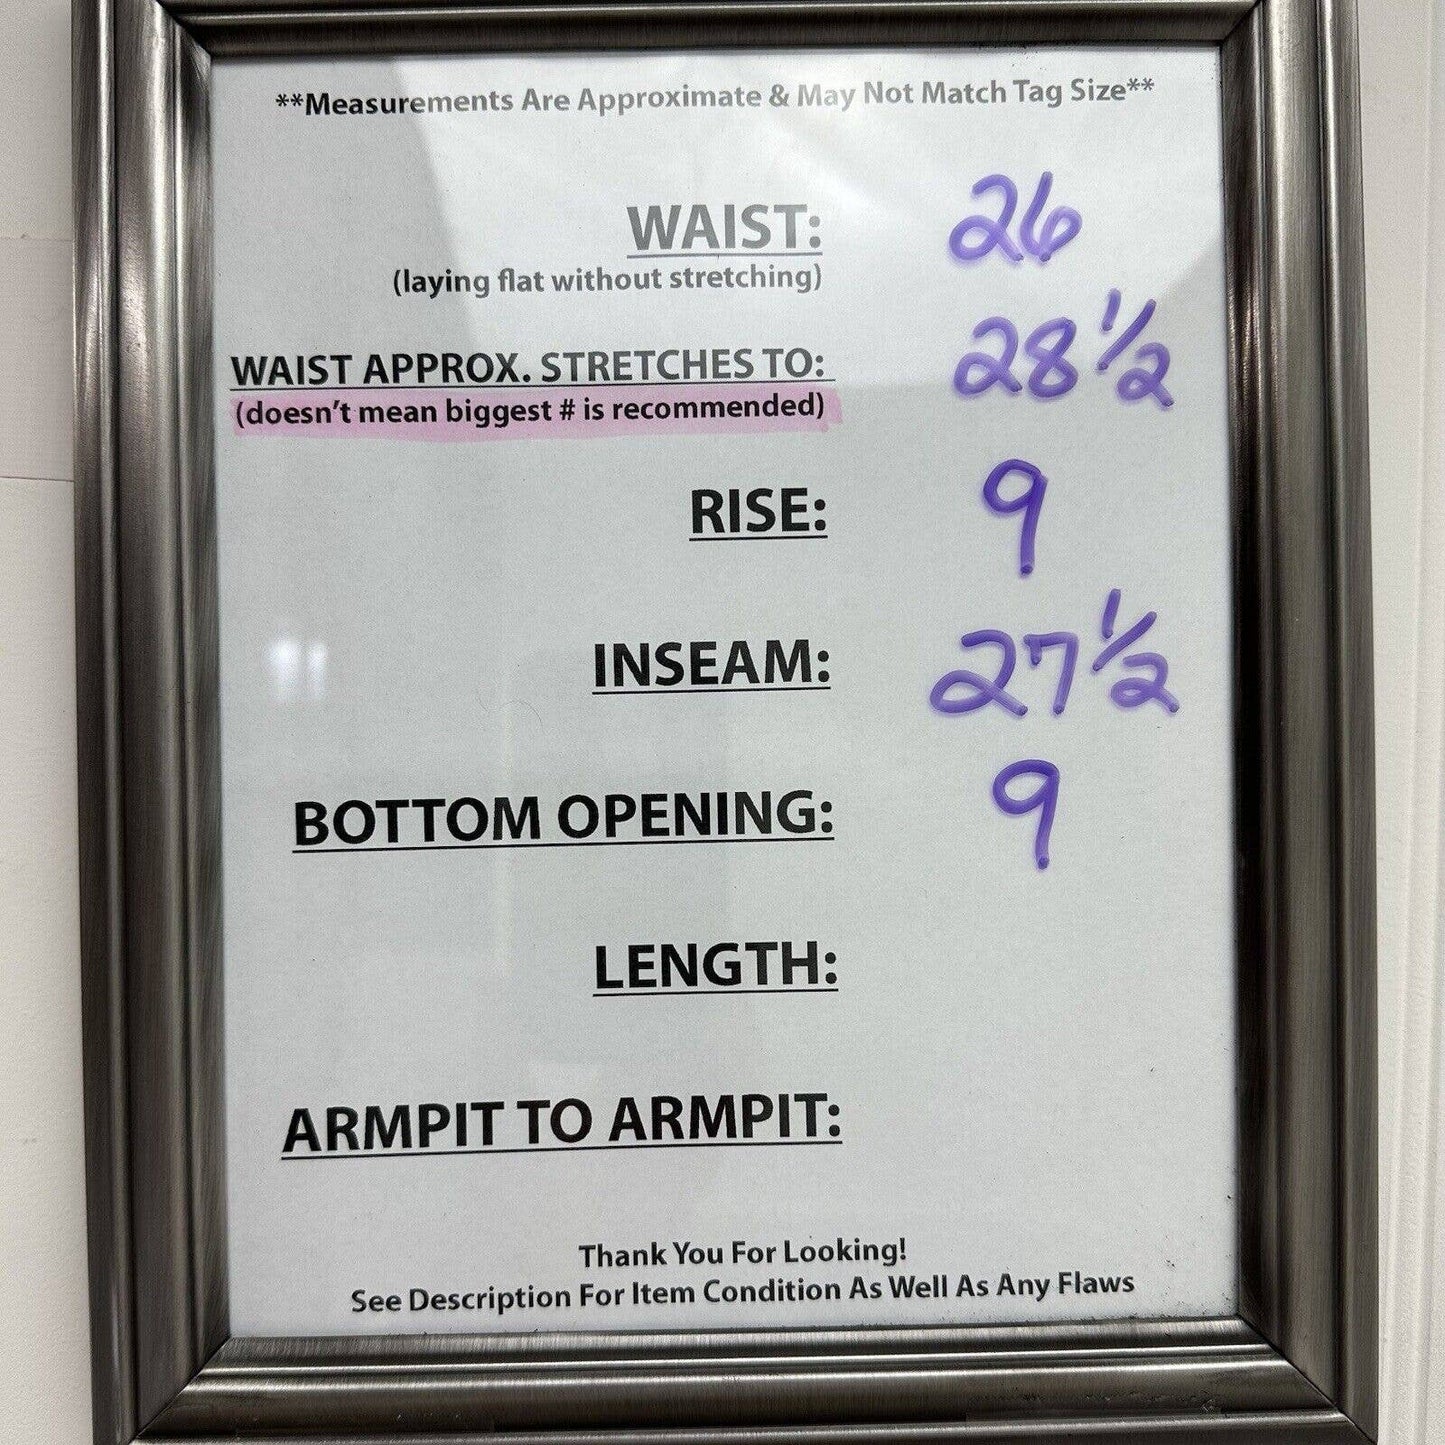 **Measurements Are Approximate & May Not Match Tag Size**
WAIST: 26
(laying flat without stretching)
WAIST APPROX. STRETCHES TO: 28 1/2
(doesn't mean biggest # is recommended)
RISE: 9
INSEAM: 27 1/2
BOTTOM OPENING: 9
LENGTH:
ARMPIT TO ARMPIT:
Thank You For Looking!
See Description For Item Condition As Well As Any Flaws